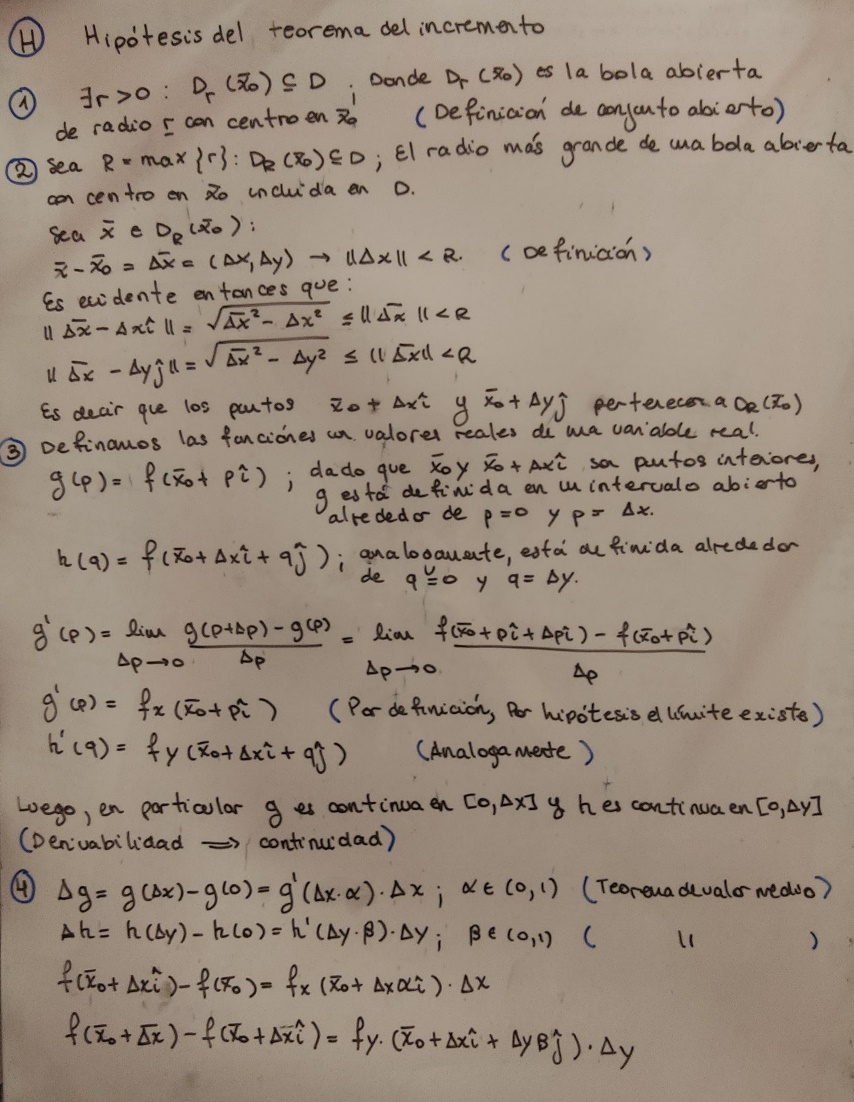 Ⓗ Hipótesis del teorema del incremento
① ∃r>0 : Dr (x̄₀) ⊆ D ; Donde Dr (x̄₀) es la bola abierta
de radio r con centro en x̄₀ (Definición de conjunto abierto)
② Sea R = max {r} : DR (x̄₀) ⊆ D ; El radio más grande de una bola abierta
con centro en x̄₀ incluida en D.
Sea x̄ ∈ DR (x̄₀) :
x̄ - x̄₀ = Δx̄ = (Δx, Δy) → ||Δx|| < R. (Definición)
Es evidente entonces que :
|| Δx̄ - Δxî || = √Δx̄² - Δx² ≤ || Δx̄ || < R
|| Δx̄ - Δyĵ || = √Δx̄² - Δy² ≤ || Δx̄ || < R
Es decir que los puntos x̄₀ + Δxî y x̄₀ + Δyĵ pertenecen a DR(x̄₀)
③ Definamos las funciones con valores reales de una variable real.
g(p) = f(x̄₀ + pî) ; dado que x̄₀ y x̄₀ + Δxî son puntos interiores,
g está definida en un intervalo abierto
alrededor de p=0 y p= Δx.
h(q) = f(x̄₀ + Δxî + qĵ) ; analogamente, está definida alrededor
de q=0 y q= Δy.
g'(p) = lim Δp→0 g(p+Δp) - g(p) / Δp = lim Δp→0 f(x̄₀ + pî + Δpî) - f(x̄₀ + pî) / Δp
g'(p) = fx (x̄₀ + pî) (Por definición, Por hipótesis el límite existe)
h'(q) = fy (x̄₀ + Δxî + qĵ) (Analogamente)
Luego, en particular g es continua en [0, Δx] y h es continua en [0, Δy]
(Derivabilidad ⟹ continuidad)
④ Δg = g(Δx) - g(0) = g'(Δx·α)·Δx ; α ∈ (0,1) (Teorema de valor medio)
Δh = h(Δy) - h(0) = h'(Δy·β)·Δy ; β ∈ (0,1) ( " )
f(x̄₀ + Δxî) - f(x̄₀) = fx (x̄₀ + Δxαî)·Δx
f(x̄₀ + Δx̄) - f(x̄₀ + Δxî) = fy·(x̄₀ + Δxî + Δyβĵ)·Δy